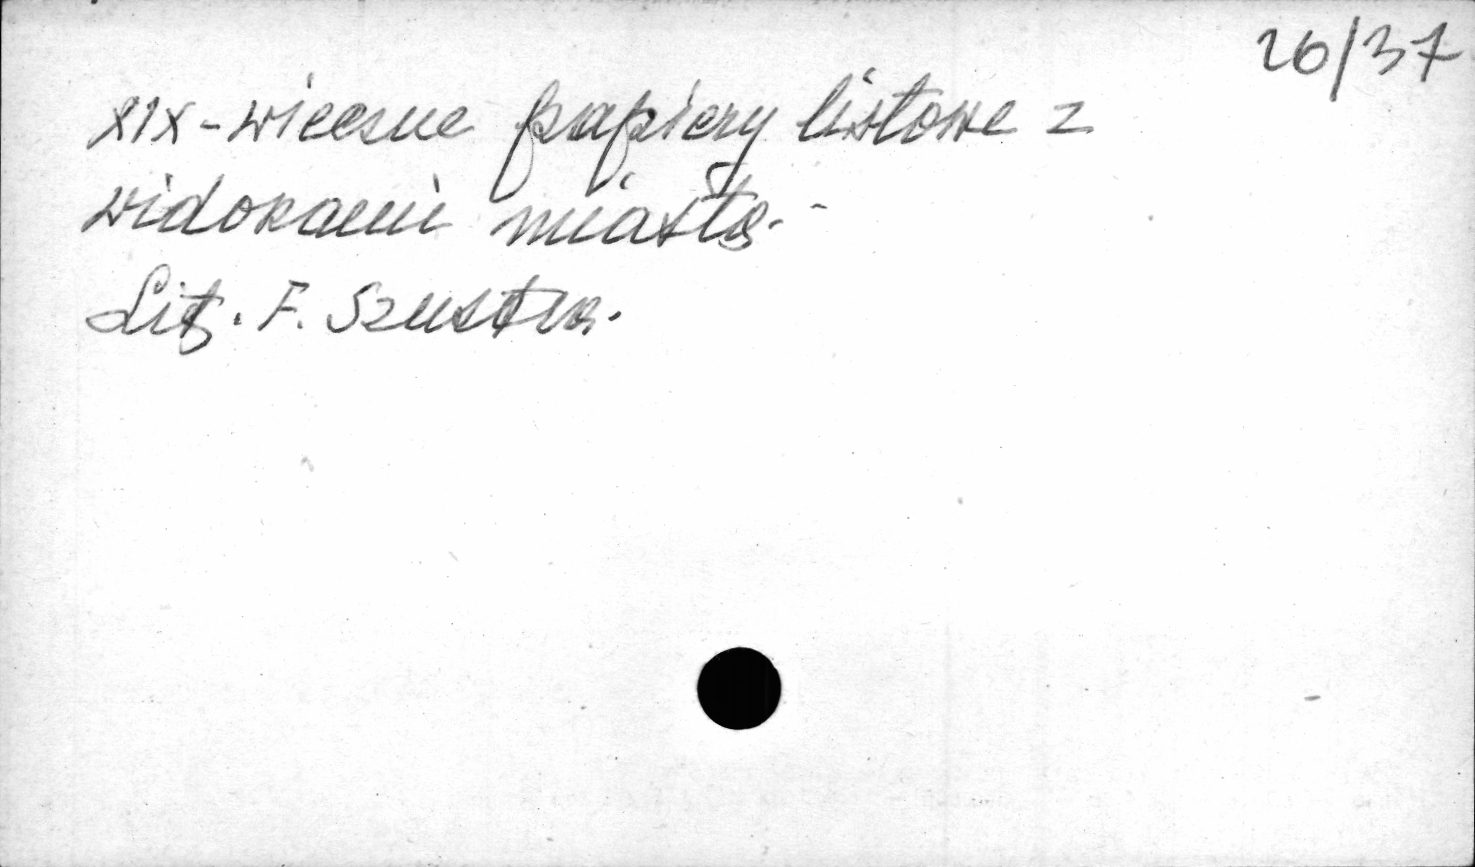 26/37
XIX-wieczne papiery listowe z
widokami miasta.-
Lit. F. Szustra.